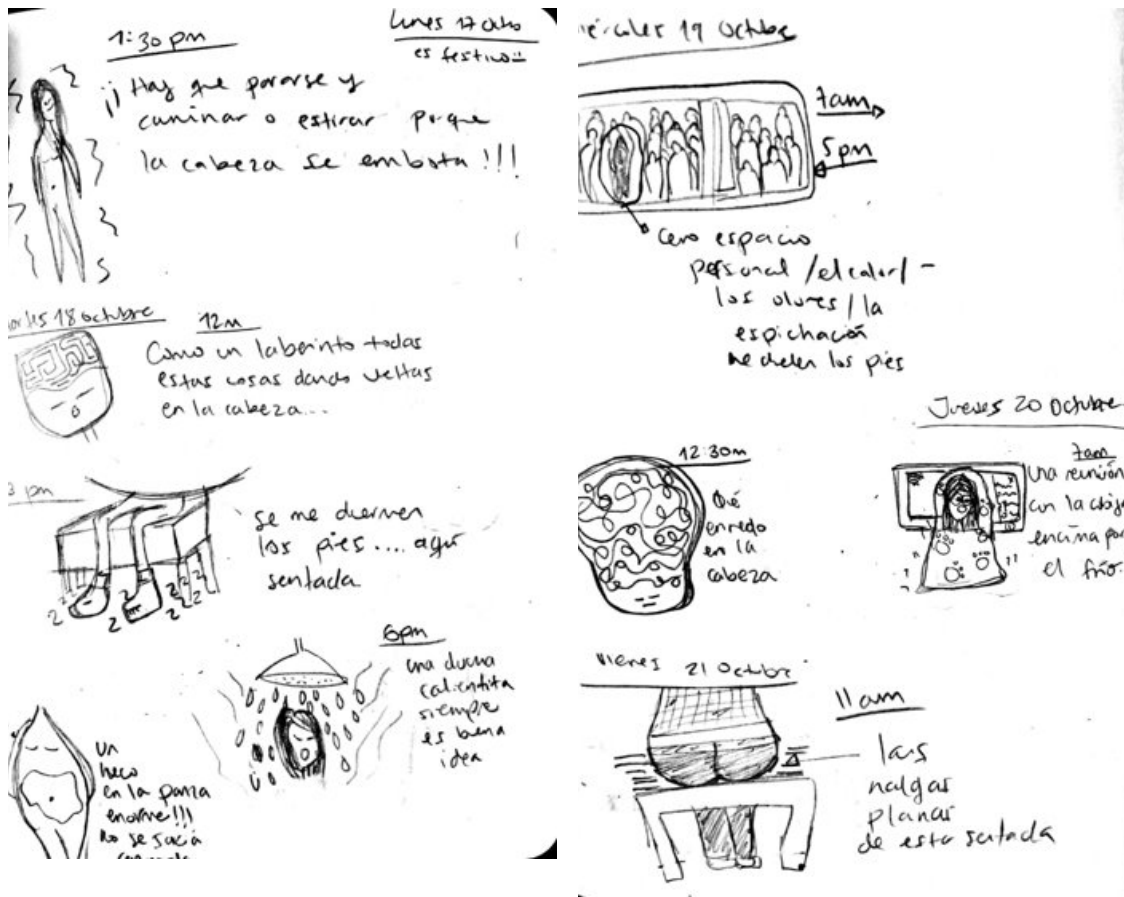 1:30 pm
Lunes 17 octu
es festivo
¡¡ Hay que pararse y
caminar o estirar porque
la cabeza se embota !!!
martes 18 octubre
12m
Como un laberinto todas
estas cosas dando vueltas
en la cabeza...
3 pm
se me duermen
los pies.... aquí
sentada
z z z z z z z
6pm
una ducha
calientita
siempre
es buena
idea
Un
hueco
en la panza
enorme!!!
no se sacia
miércoles 19 Octubre
7am
5pm
Cero espacio
personal /el calor/ -
los olores / la
espichación
me duelen los pies
12:30m
Qué
enredo
en la
cabeza
Jueves 20 Octubre
7am
una reunión
con la cobija
encima por
el frío.
Viernes 21 Octubre
11 am
las
nalgas
planas
de estar sentada